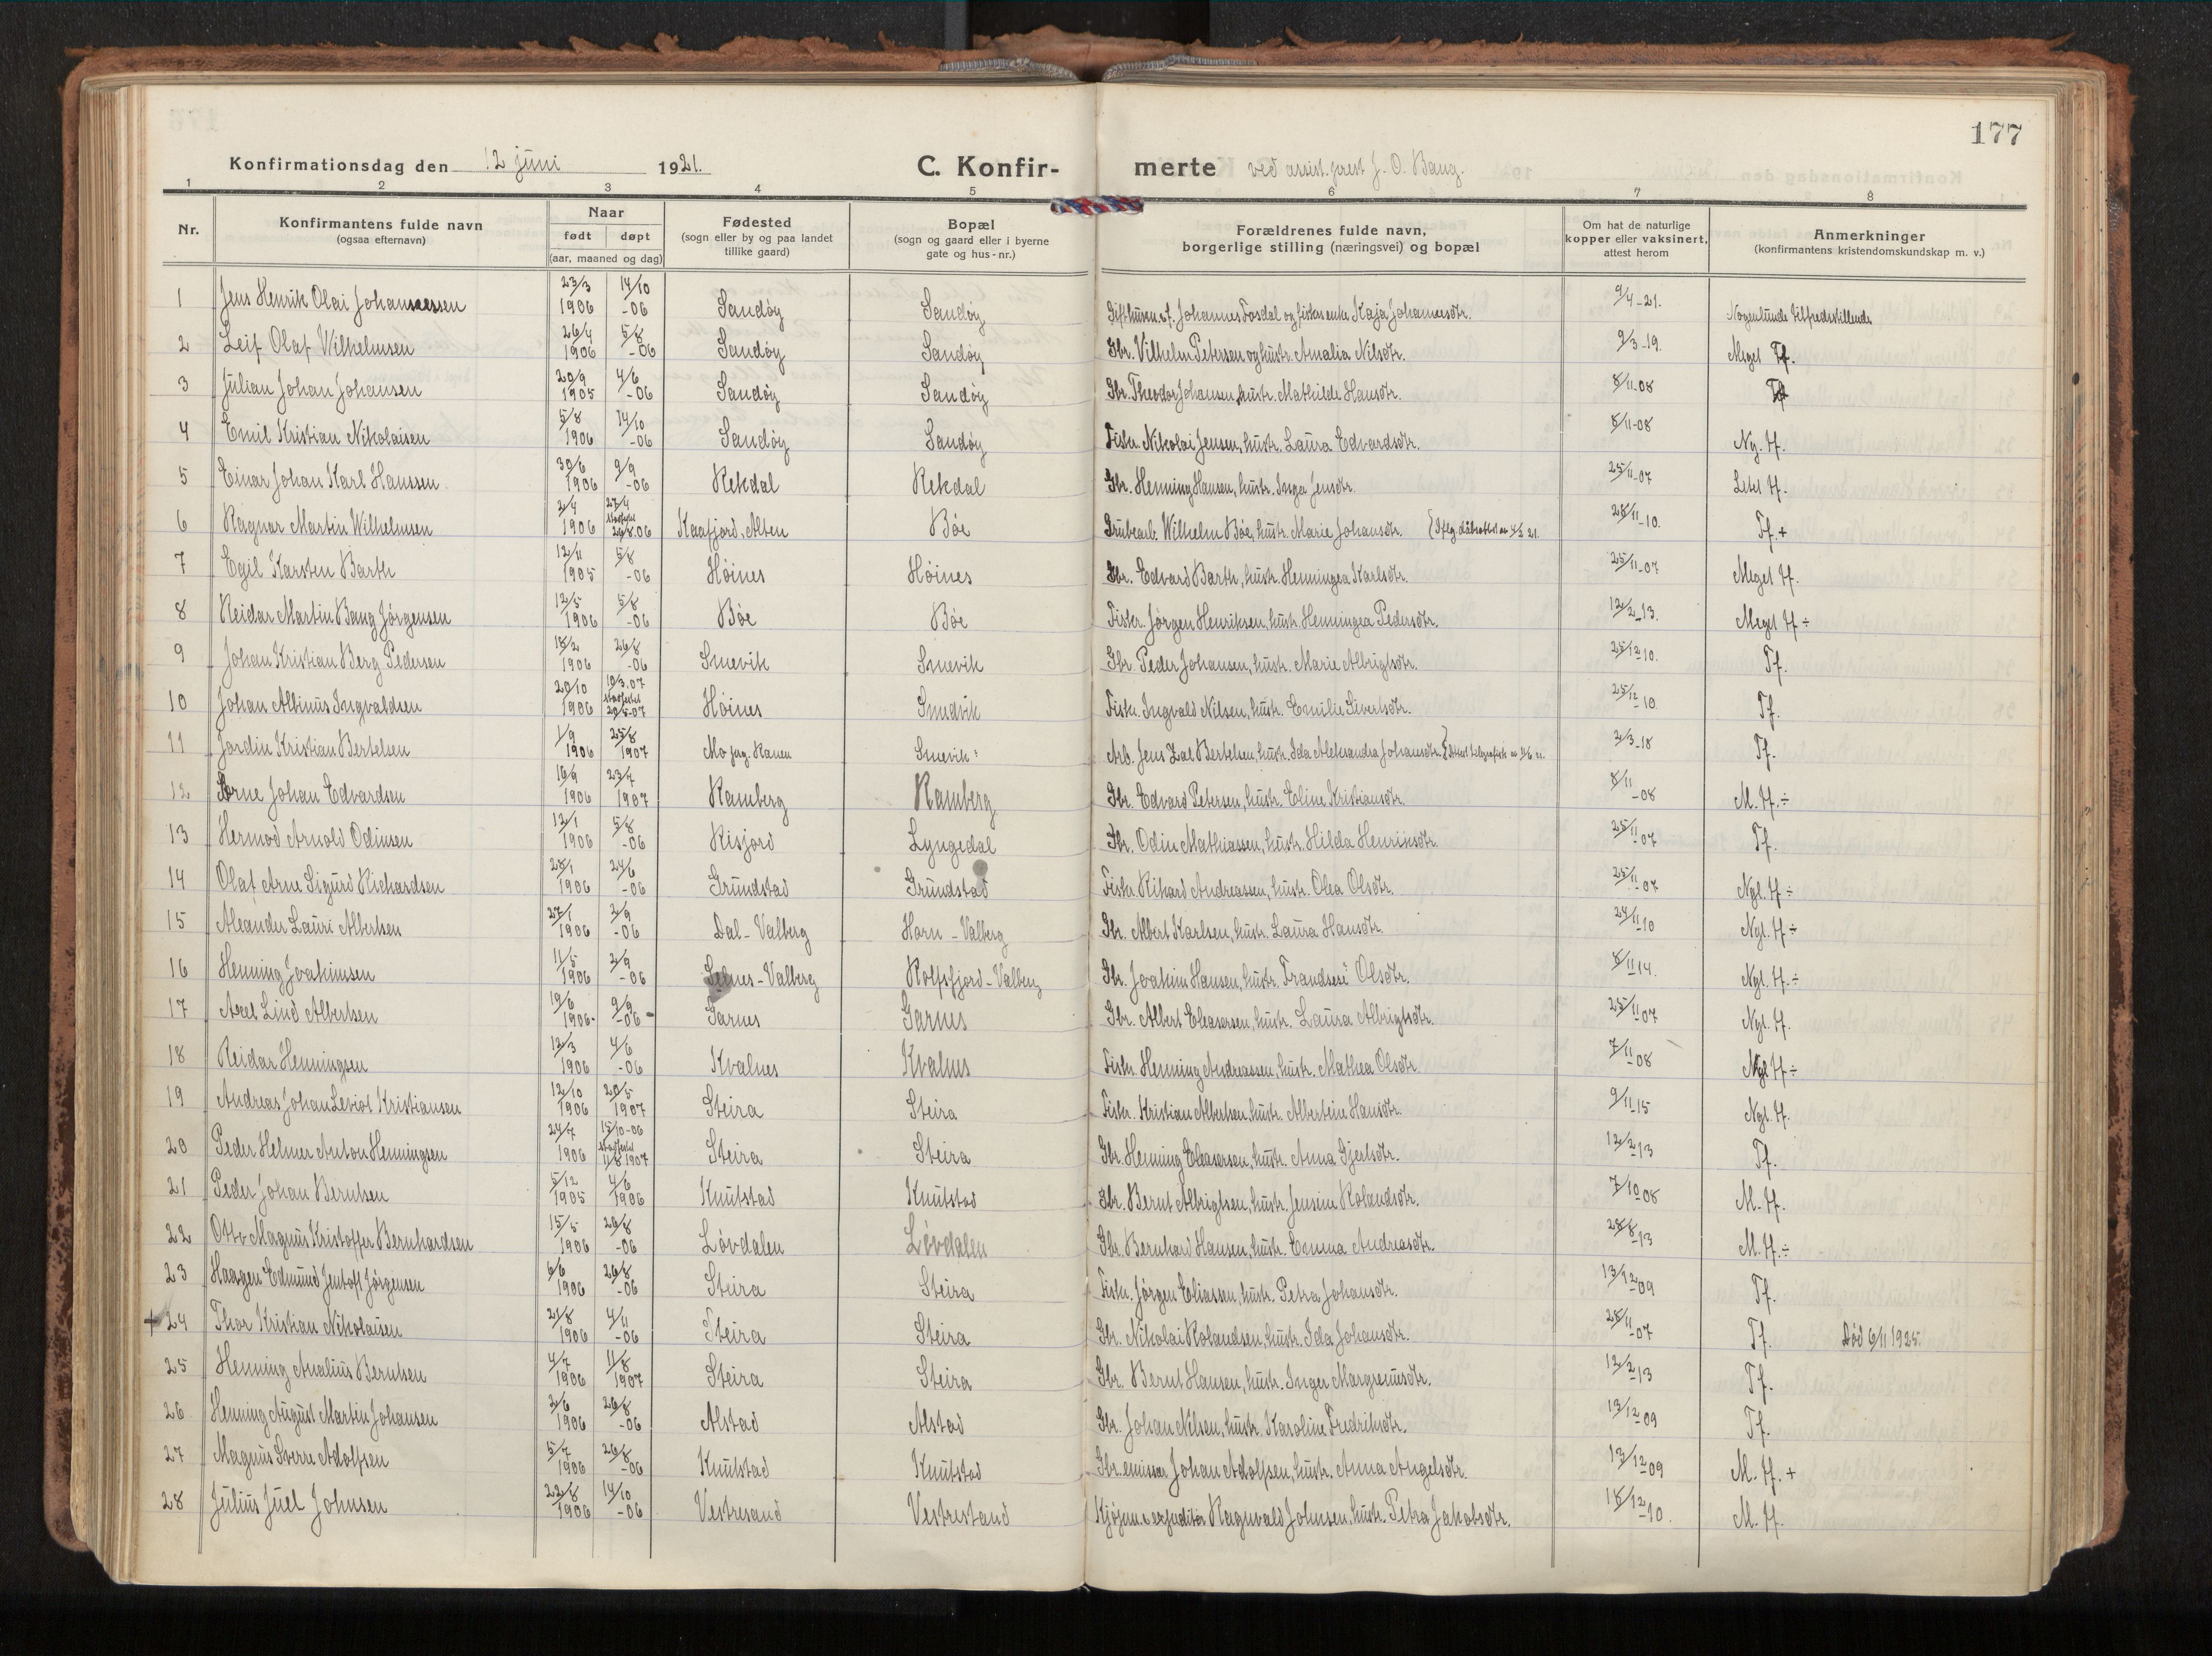 177
Konfirmationsdag den 12 juni 1921. C. Konfir- merte ved assist. prest J. O. Bang.
1 2 3 4 5 6 7 8
Nr. Konfirmantens fulde navn (ogsaa efternavn) Naar født døpt (aar, maaned og dag) Fødested (sogn eller by og paa landet tillike gaard) Bopæl (sogn og gaard eller i byerne gate og hus-nr.) Forældrenes fulde navn, borgerlige stilling (næringsvei) og bopæl Om hat de naturlige kopper eller vaksinert, attest herom Anmerkninger (konfirmantens kristendomskundskap m. v.)
1 Jens Henrik Olai Johannessen 23/3 1906 14/10 -06 Sandøy Sandøy Johannes Fosdal og enke Kaja Johannesdtr. 9/4-21. Nogenlunde tilfredsstillende
2 Leif Olaf Wilhelmsen 26/4 1906 5/8 -06 Sandøy Sandøy Gbr. Vilhelm Petersen og hustr. Amalia Nilsdtr. 9/3-19. Meget Tf.
3 Julian Johan Johansen 20/9 1905 4/6 -06 Sandøy Sandøy Gbr. Theodor Johansen, hustr. Mathilde Hansdtr. 8/11-08 Tf
4 Emil Kristian Nikolaisen 5/8 1906 14/10 -06 Sandøy Sandøy Fisker. Nikolai Jensen, hustr. Laura Edvardsdtr. 8/11-08 Ng. tf.
5 Einar Johan Karl Hanssen 30/6 1906 9/9 -06 Rekdal Rekdal Gbr. Henning Hansen, hustr. Inga Jensdtr. 25/11-07 tf.
6 Ragnar Martin Wilhelmsen 2/4 1906 27/4 stadfestet 26/8.06 Kaafjord, Alten Bøe Grubearb. Wilhelm Bøe, hustr. Marie Johansdtr. 28/11-10. Tf.+
7 Egil Karsten Barth 12/11 1905 5/8 -06 Høines Høines Gbr. Edvard Barth, hustr. Henningea Karlsdtr. 25/11-07 Meget tf.
8 Reidar Martin Bang Jørgensen 12/5 1906 5/8 -06 Bøe Bøe Fisker. Jørgen Henriksen, hustr. Henningea Pedersdtr. 12/2-13. Meget tf ÷
9 Johan Kristian Berg Pedersen 18/2 1906 26/8 -06 Smevik Smevik Gbr. Peder Johansen, hustr. Marie Albrigtsdtr. 25/12 10. Tf.
10 Johan Albinus Ingvaldsen 20/10 1906 10/3.07 stadfestet 20/5-07 Høines Smevik Fisker. Ingvald Nilsen, hustr. Emilie Sivertsdtr. 25/12 10 Tf.
11 Jordin Kristian Bertelsen 1/9 1906 25/8 1907 Mo pgj. Ranen Smevik Arb. Jens Zal Bertelsen, hustr. Ida Aleksandra Johansdtr. 2/3-18 Tf.
12 Arne Johan Edvardsen 16/9 1906 23/7 1907 Ramberg Ramberg Gbr. Edvard Petersen, hustr. Eline Kristiansdtr. 8/11-08 M. tf.÷
13 Hermod Arnold Odinsen 12/1 1906 5/8 -06 Risjord Lyngedal Gbr. Odin Mathiassen, hustr. Hilda Henriksdtr. 25/11 07 Tf.
14 Olaf Arne Sigurd Richardsen 28/1 1906 24/6 -06 Grundstad Grundstad Fisker Rikard Andreassen, hustr. Olea Olsdtr. 25/11 07 Ngl. tf ÷
15 Aleander Lauri Albertsen 27/1 1906 2/9 -06 Dal - Valberg Horn - Valberg Gbr. Albert Karlsen, hustr. Laura Hansdtr. 24/11 10 Ngl. tf ÷
16 Henning Joakimsen 11/5 1906 2/9 -06 Selnes - Valberg Rolfsfjord - Valberg Gbr. Joakim Hansen, hustr. Olsdtr. 8/11 14. Ngl. tf. ÷
17 Axel Lind Albertsen 19/6 1906 9/9 -06 Garnes Garnes Gbr. Albert Eleasersen, hustr. Laura Albrigtsdtr. 25/11 07 Ngl. tf.
18 Reidar Henningsen 12/3 1906 4/6 -06 Kvalnes Kvalnes Fisker Henning Andreassen, hustr. Mathea Olsdtr. 7/11-08 Ngl tf ÷
19 Andreas Johan Leviot Kristiansen 12/10 1906 20/5 1907 Steira Steira Fisker. Kristian Albertsen, hustr. Albertine Hansdtr. 9/11 15 Ngl. tf.
20 Peder Helmer Anton Henningsen 24/7 1906 15/10-06 stadfestet 11/8 1907 Steira Steira Gbr. Henning Eleasersen, hustr. Anna Gjertsdtr. 12/2 13 Tf.
21 Peder Johan Berntsen 5/12 1905 4/6 1906 Knutstad Knutstad Gbr. Bernt Albrigtsen, hustr. Jensine Rolandsdtr. 7/10 08 M. tf.
22 Otto Magnus Kristoffer Bernhardsen 15/5 1906 26/8 -06 Løvdalen Løvdalen Gbr. Bernhard Hansen, hustr. Emma Andreasdtr. 28/8-13 M. tf. ÷
23 Haagen Edmund Jentoft Jørgensen 6/6 1906 26/8 -06 Steira Steira Fisker. Jørgen Eliassen, hustr. Petra Johansdtr. 13/12 09 Tf.
+ 24 Thor Kristian Nikolaisen 21/8 1906 4/11 -06 Steira Steira Gbr. Nikolai Rolandsen, hustr. Ida Johansdtr. 28/11-07 Tf. Død 6/11 1925.
25 Henning Analius Berntsen 4/7 1906 11/8 1907 Steira Steira Gbr. Bernt Hansen, hustr. Inger Margrenusdtr. 12/2 13 Tf.
26 Henning August Martin Johansen 2/6 1906 26/8 -06 Alstad Alstad Gbr. Johan Nilsen, hustr. Karoline Fredriksdtr. 13/12 09 Tf.
27 Magnus Sverre Adolfsen 5/7 1906 26/8 -06 Knutstad Knutstad Gbr. emissær Johan Adolfsen, hustr. Anna Angelsdtr. 13/12 09 M. tf. +
28 Julius Juel Johnsen 22/8 1906 14/10 -06 Vestresand Vestrestand Kjøpm. Ragnvald Johnsen, hustr. Petra Jakobsdtr. 18/12-10. M. tf.